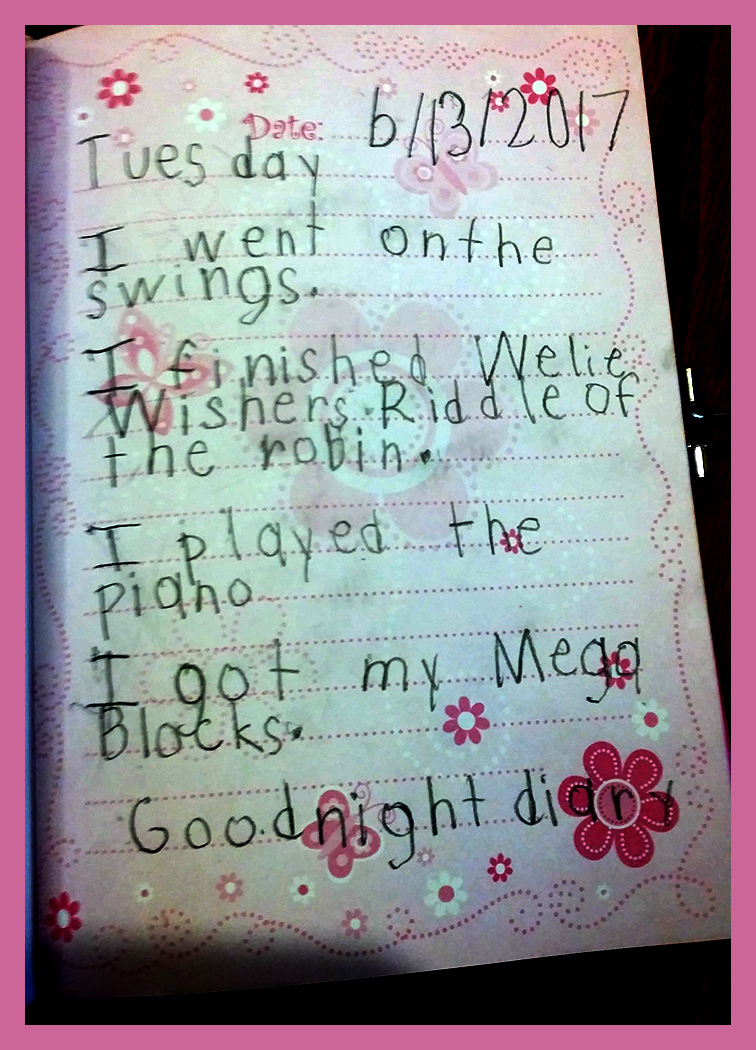 Date: 6/13/2017
Tuesday
I went on the
swings.
I finished Welie
Wishers Riddle of
the robin.
I played the
piano
I got my Mega
Blocks.
Good night diary